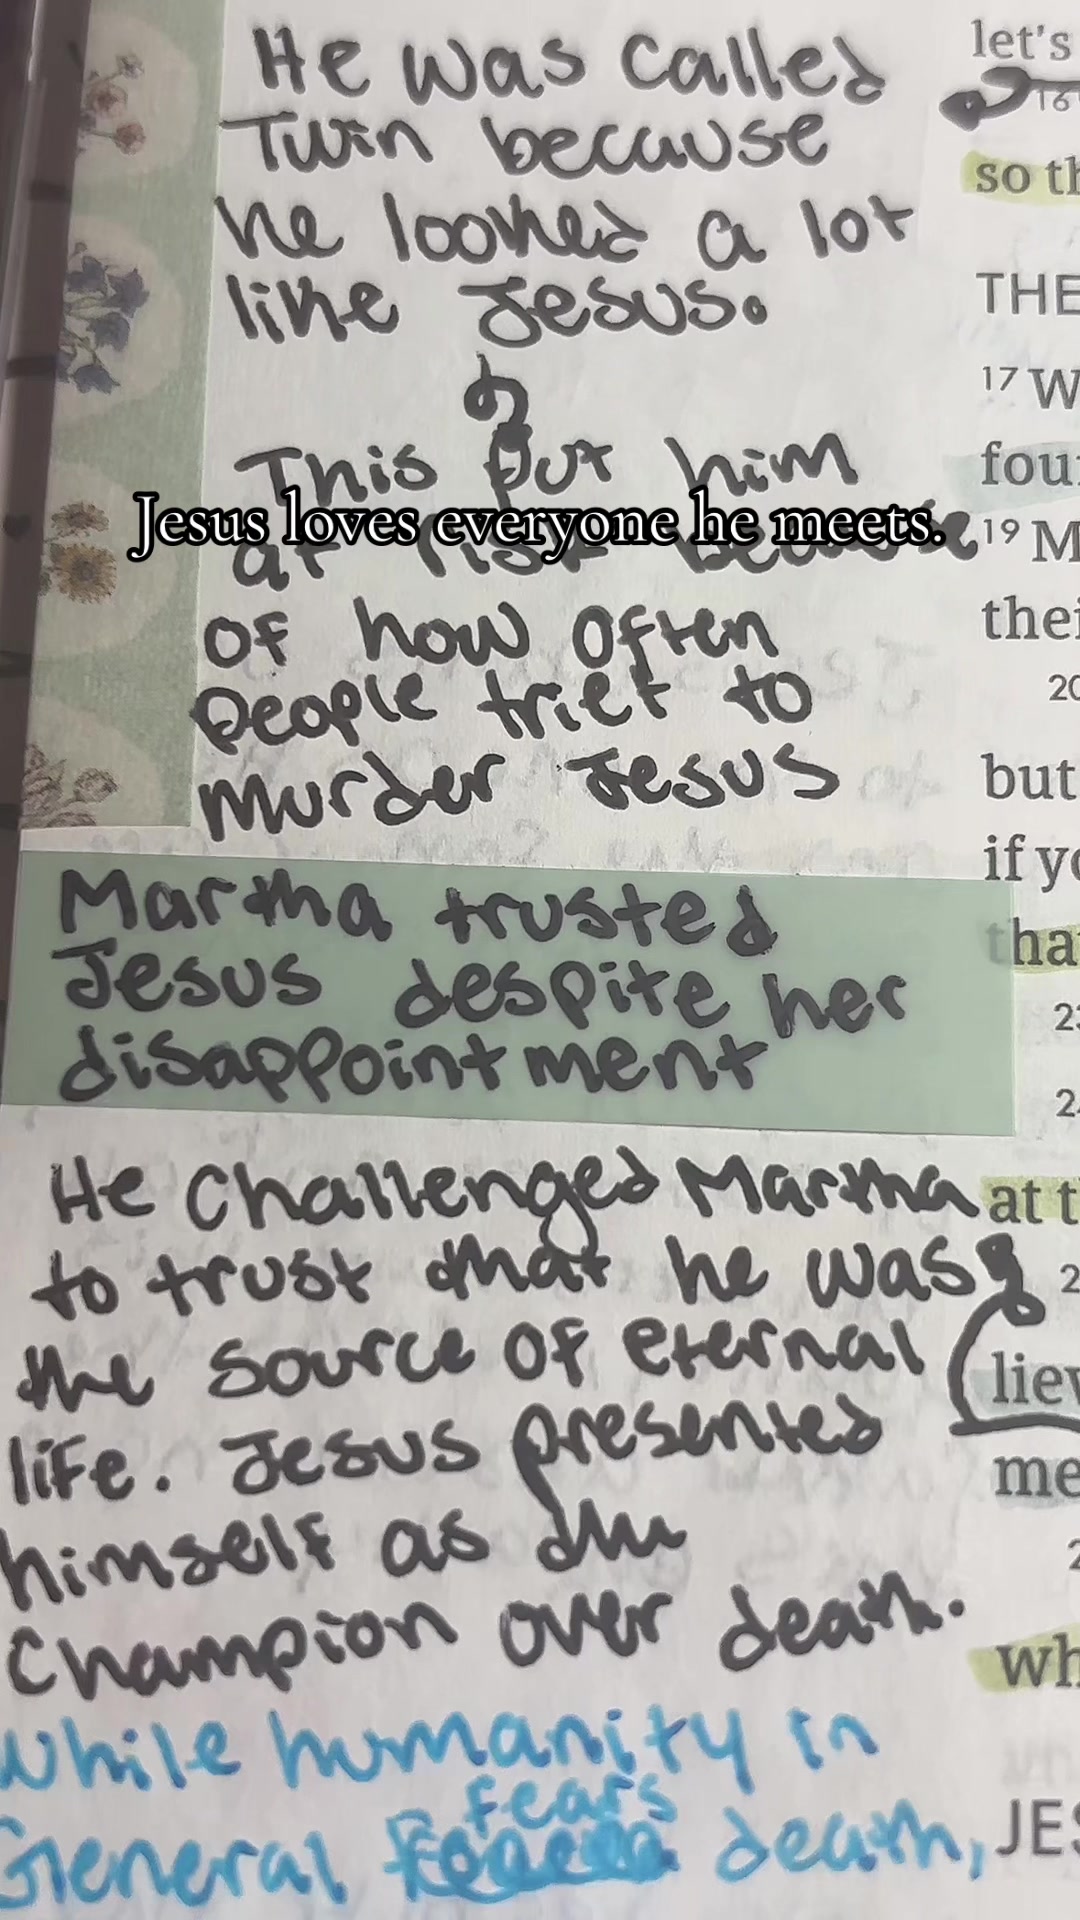 He was called
Twin because
he looked a lot
like Jesus.
This put him
Jesus loves everyone he meets.
at risk because
of how often
people triet to
murder Jesus
Martha trusted
Jesus despite her
disappointment
He challenged Martha
to trust that he was
the source of eternal
life. Jesus presented
himself as the
Champion over death.
While humanity in
fears
General death,
let's
16
so th
THE
17 W
fou
19 M
thei
20
but
if yo
tha
2
at t
2
liev
me
2
wh
JES